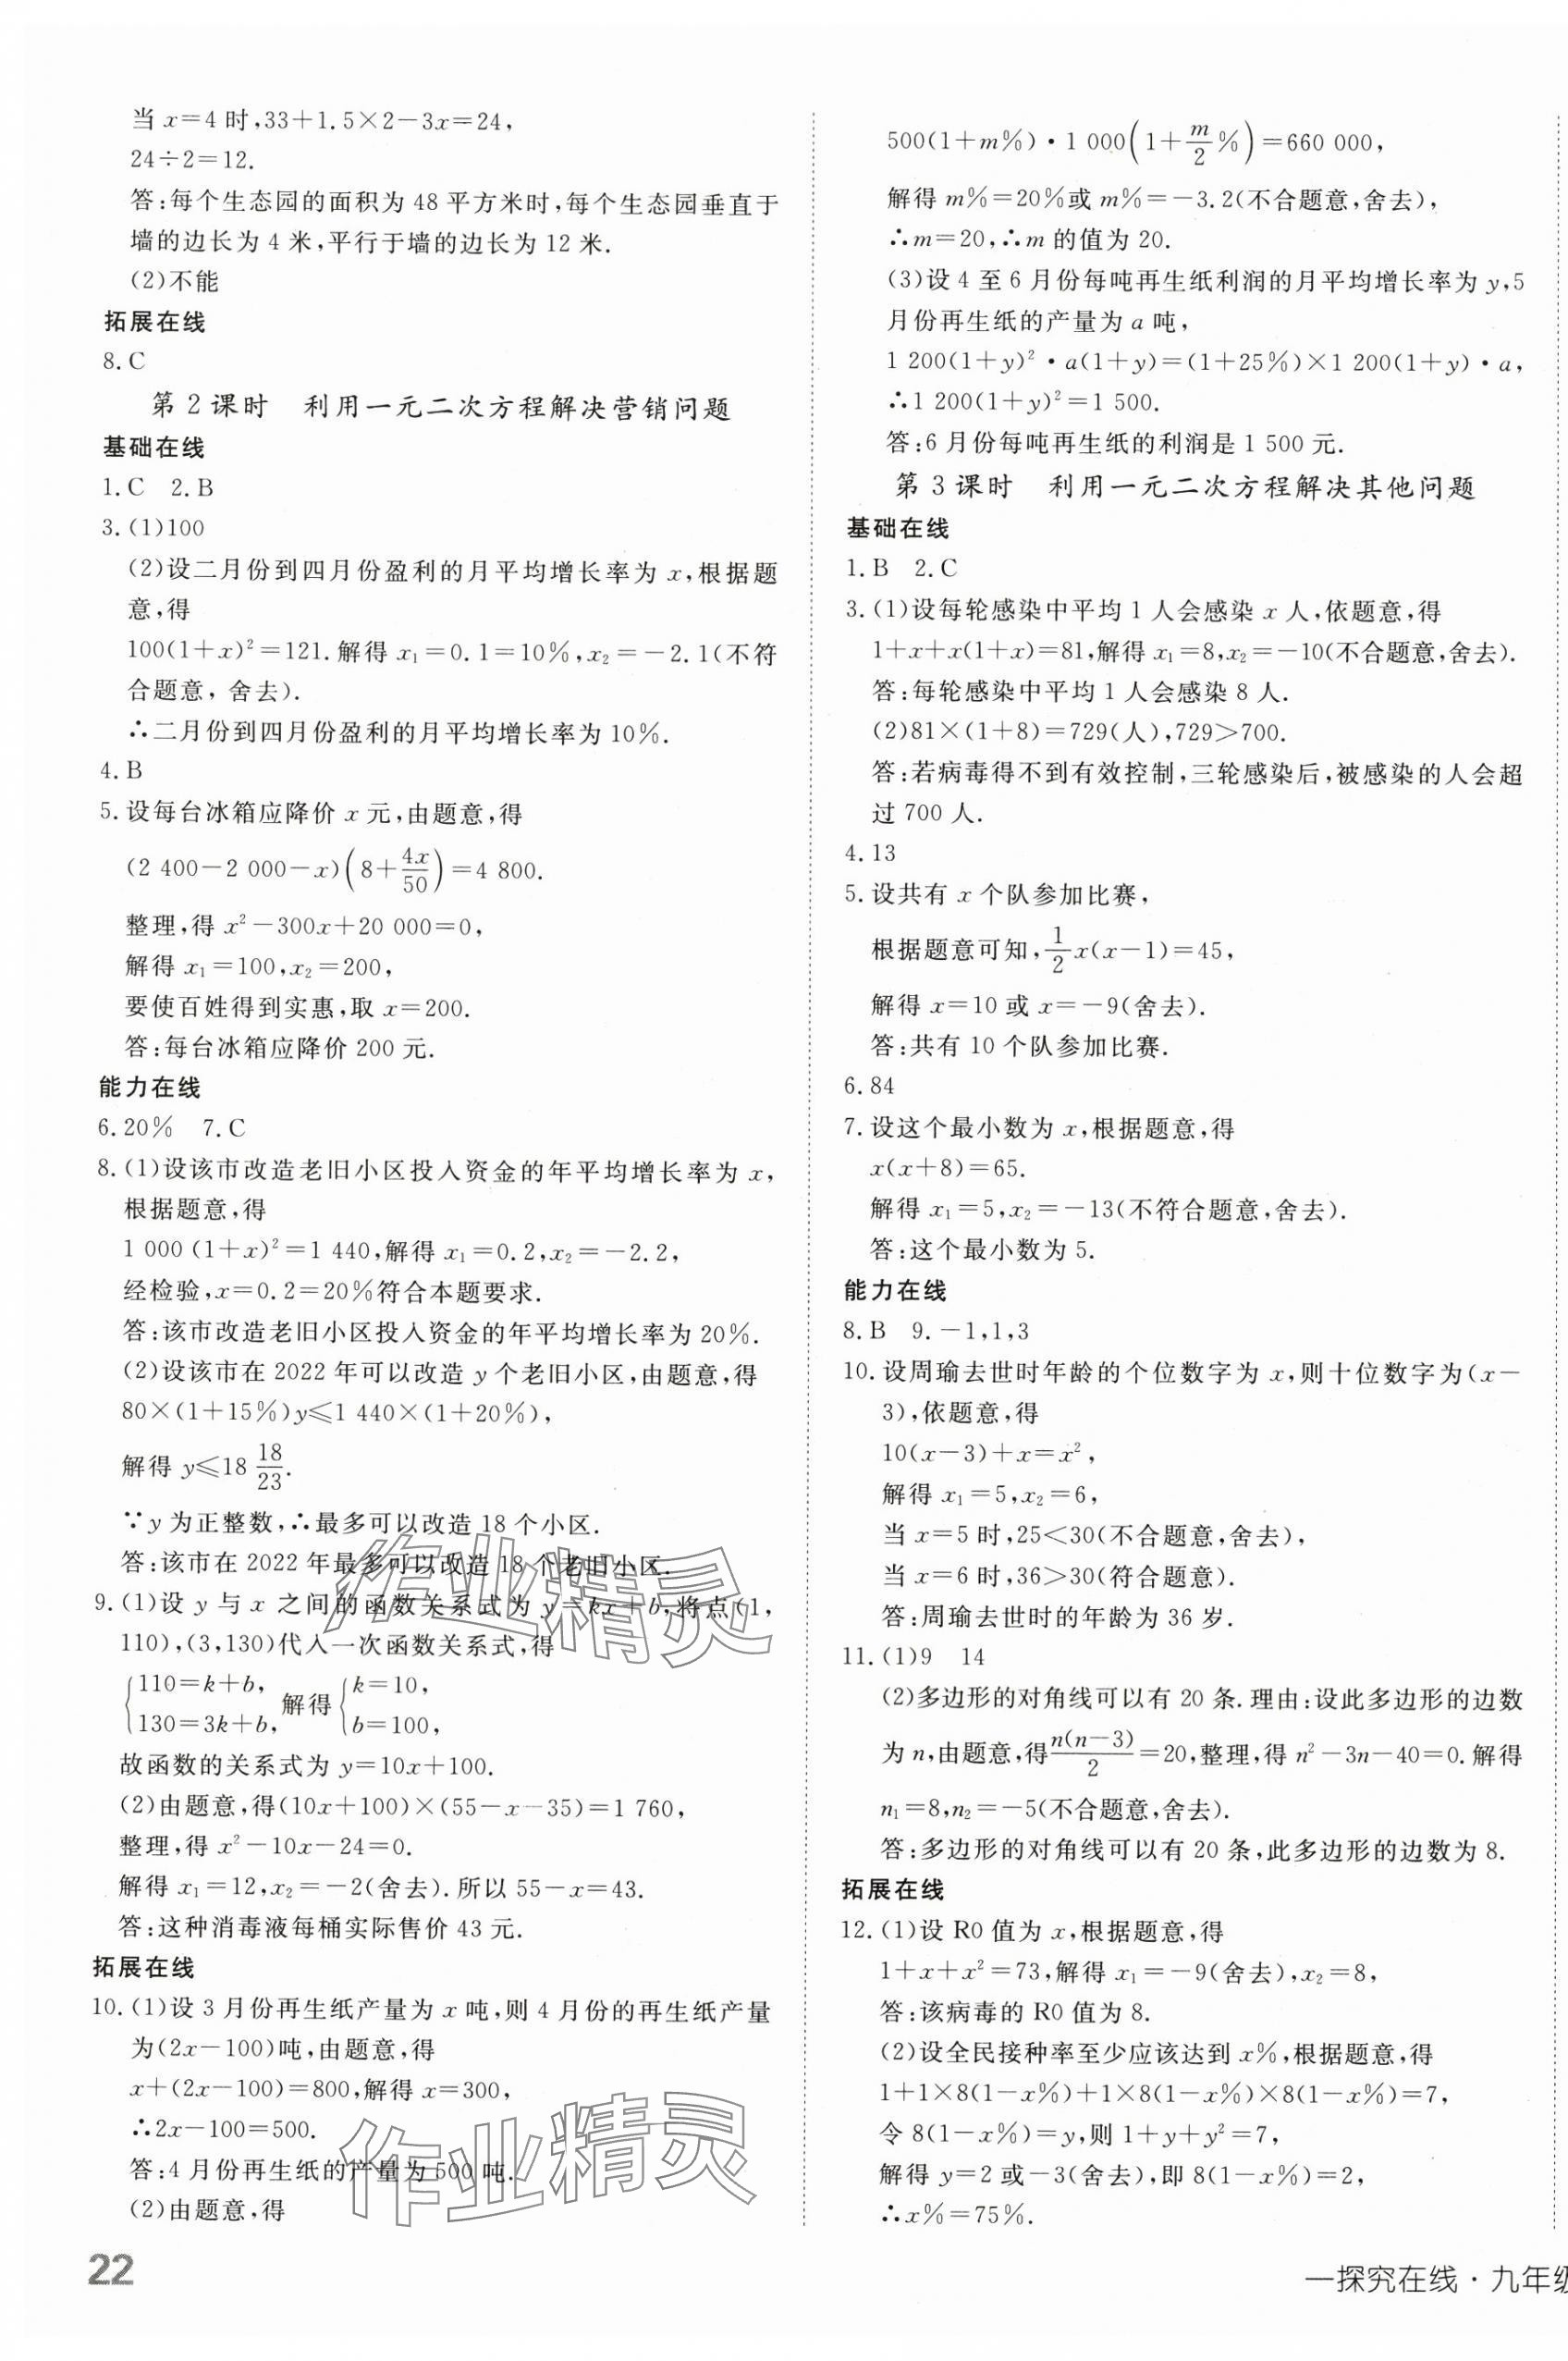 当 x=4 时,33+1.5×2-3x=24,
24÷2=12.
答:每个生态园的面积为 48 平方米时,每个生态园垂直于
墙的边长为 4 米,平行于墙的边长为 12 米.
(2)不能
拓展在线
8.C
第 2 课时 利用一元二次方程解决营销问题
基础在线
1.C 2.B
3.(1)100
(2)设二月份到四月份盈利的月平均增长率为 x,根据题
意,得
100(1+x)²=121.解得 x₁=0.1=10%,x₂=-2.1(不符
合题意,舍去).
∴二月份到四月份盈利的月平均增长率为 10%.
4.B
5.设每台冰箱应降价 x 元,由题意,得
(2 400-2 000-x)(8+4x/50)=4 800.
整理,得 x²-300x+20 000=0,
解得 x₁=100,x₂=200,
要使百姓得到实惠,取 x=200.
答:每台冰箱应降价 200 元.
能力在线
6.20% 7.C
8.(1)设该市改造老旧小区投入资金的年平均增长率为 x,
根据题意,得
1 000 (1+x)²=1 440,解得 x₁=0.2,x₂=-2.2,
经检验,x=0.2=20%符合本题要求.
答:该市改造老旧小区投入资金的年平均增长率为 20%.
(2)设该市在 2022 年可以改造 y 个老旧小区,由题意,得
80×(1+15%)y≤1 440×(1+20%),
解得 y≤18 18/23.
∵y 为正整数,∴最多可以改造 18 个小区.
答:该市在 2022 年最多可以改造 18 个老旧小区.
9.(1)设 y 与 x 之间的函数关系式为 y=kx+b,将点(1,
110),(3,130)代入一次函数关系式,得
{110=k+b, 130=3k+b, 解得{k=10, b=100,
故函数的关系式为 y=10x+100.
(2)由题意,得(10x+100)×(55-x-35)=1 760,
整理,得 x²-10x-24=0.
解得 x₁=12,x₂=-2(舍去).所以 55-x=43.
答:这种消毒液每桶实际售价 43 元.
拓展在线
10.(1)设 3 月份再生纸产量为 x 吨,则 4 月份的再生纸产量
为(2x-100)吨,由题意,得
x+(2x-100)=800,解得 x=300,
∴2x-100=500.
答:4 月份再生纸的产量为 500 吨.
(2)由题意,得
作业精灵
作业精灵
22
500(1+m%)·1 000(1+m/2%)=660 000,
解得 m%=20%或 m%=-3.2(不合题意,舍去),
∴m=20,∴m 的值为 20.
(3)设 4 至 6 月份每吨再生纸利润的月平均增长率为 y,5
月份再生纸的产量为 a 吨,
1 200(1+y)²·a(1+y)=(1+25%)×1 200(1+y)·a,
∴1 200(1+y)²=1 500.
答:6 月份每吨再生纸的利润是 1 500 元.
第 3 课时 利用一元二次方程解决其他问题
基础在线
1.B 2.C
3.(1)设每轮感染中平均 1 人会感染 x 人,依题意,得
1+x+x(1+x)=81,解得 x₁=8,x₂=-10(不合题意,舍去).
答:每轮感染中平均 1 人会感染 8 人.
(2)81×(1+8)=729(人),729>700.
答:若病毒得不到有效控制,三轮感染后,被感染的人会超
过 700 人.
4.13
5.设共有 x 个队参加比赛,
根据题意可知,1/2x(x-1)=45,
解得 x=10 或 x=-9(舍去).
答:共有 10 个队参加比赛.
6.84
7.设这个最小数为 x,根据题意,得
x(x+8)=65.
解得 x₁=5,x₂=-13(不符合题意,舍去).
答:这个最小数为 5.
能力在线
8.B 9.-1,1,3
10.设周瑜去世时年龄的个位数字为 x,则十位数字为(x-
3),依题意,得
10(x-3)+x=x²,
解得 x₁=5,x₂=6,
当 x=5 时,25<30(不合题意,舍去),
当 x=6 时,36>30(符合题意).
答:周瑜去世时的年龄为 36 岁.
11.(1)9 14
(2)多边形的对角线可以有 20 条.理由:设此多边形的边数
为 n,由题意,得n(n-3)/2=20,整理,得 n²-3n-40=0.解得
n₁=8,n₂=-5(不合题意,舍去).
答:多边形的对角线可以有 20 条,此多边形的边数为 8.
拓展在线
12.(1)设 R0 值为 x,根据题意,得
1+x+x²=73,解得 x₁=-9(舍去),x₂=8,
答:该病毒的 R0 值为 8.
(2)设全民接种率至少应该达到 x%,根据题意,得
1+1×8(1-x%)+1×8(1-x%)×8(1-x%)=7,
令 8(1-x%)=y,则 1+y+y²=7,
解得 y=2 或-3(舍去),即 8(1-x%)=2,
∴x%=75%.
一探究在线·九年级